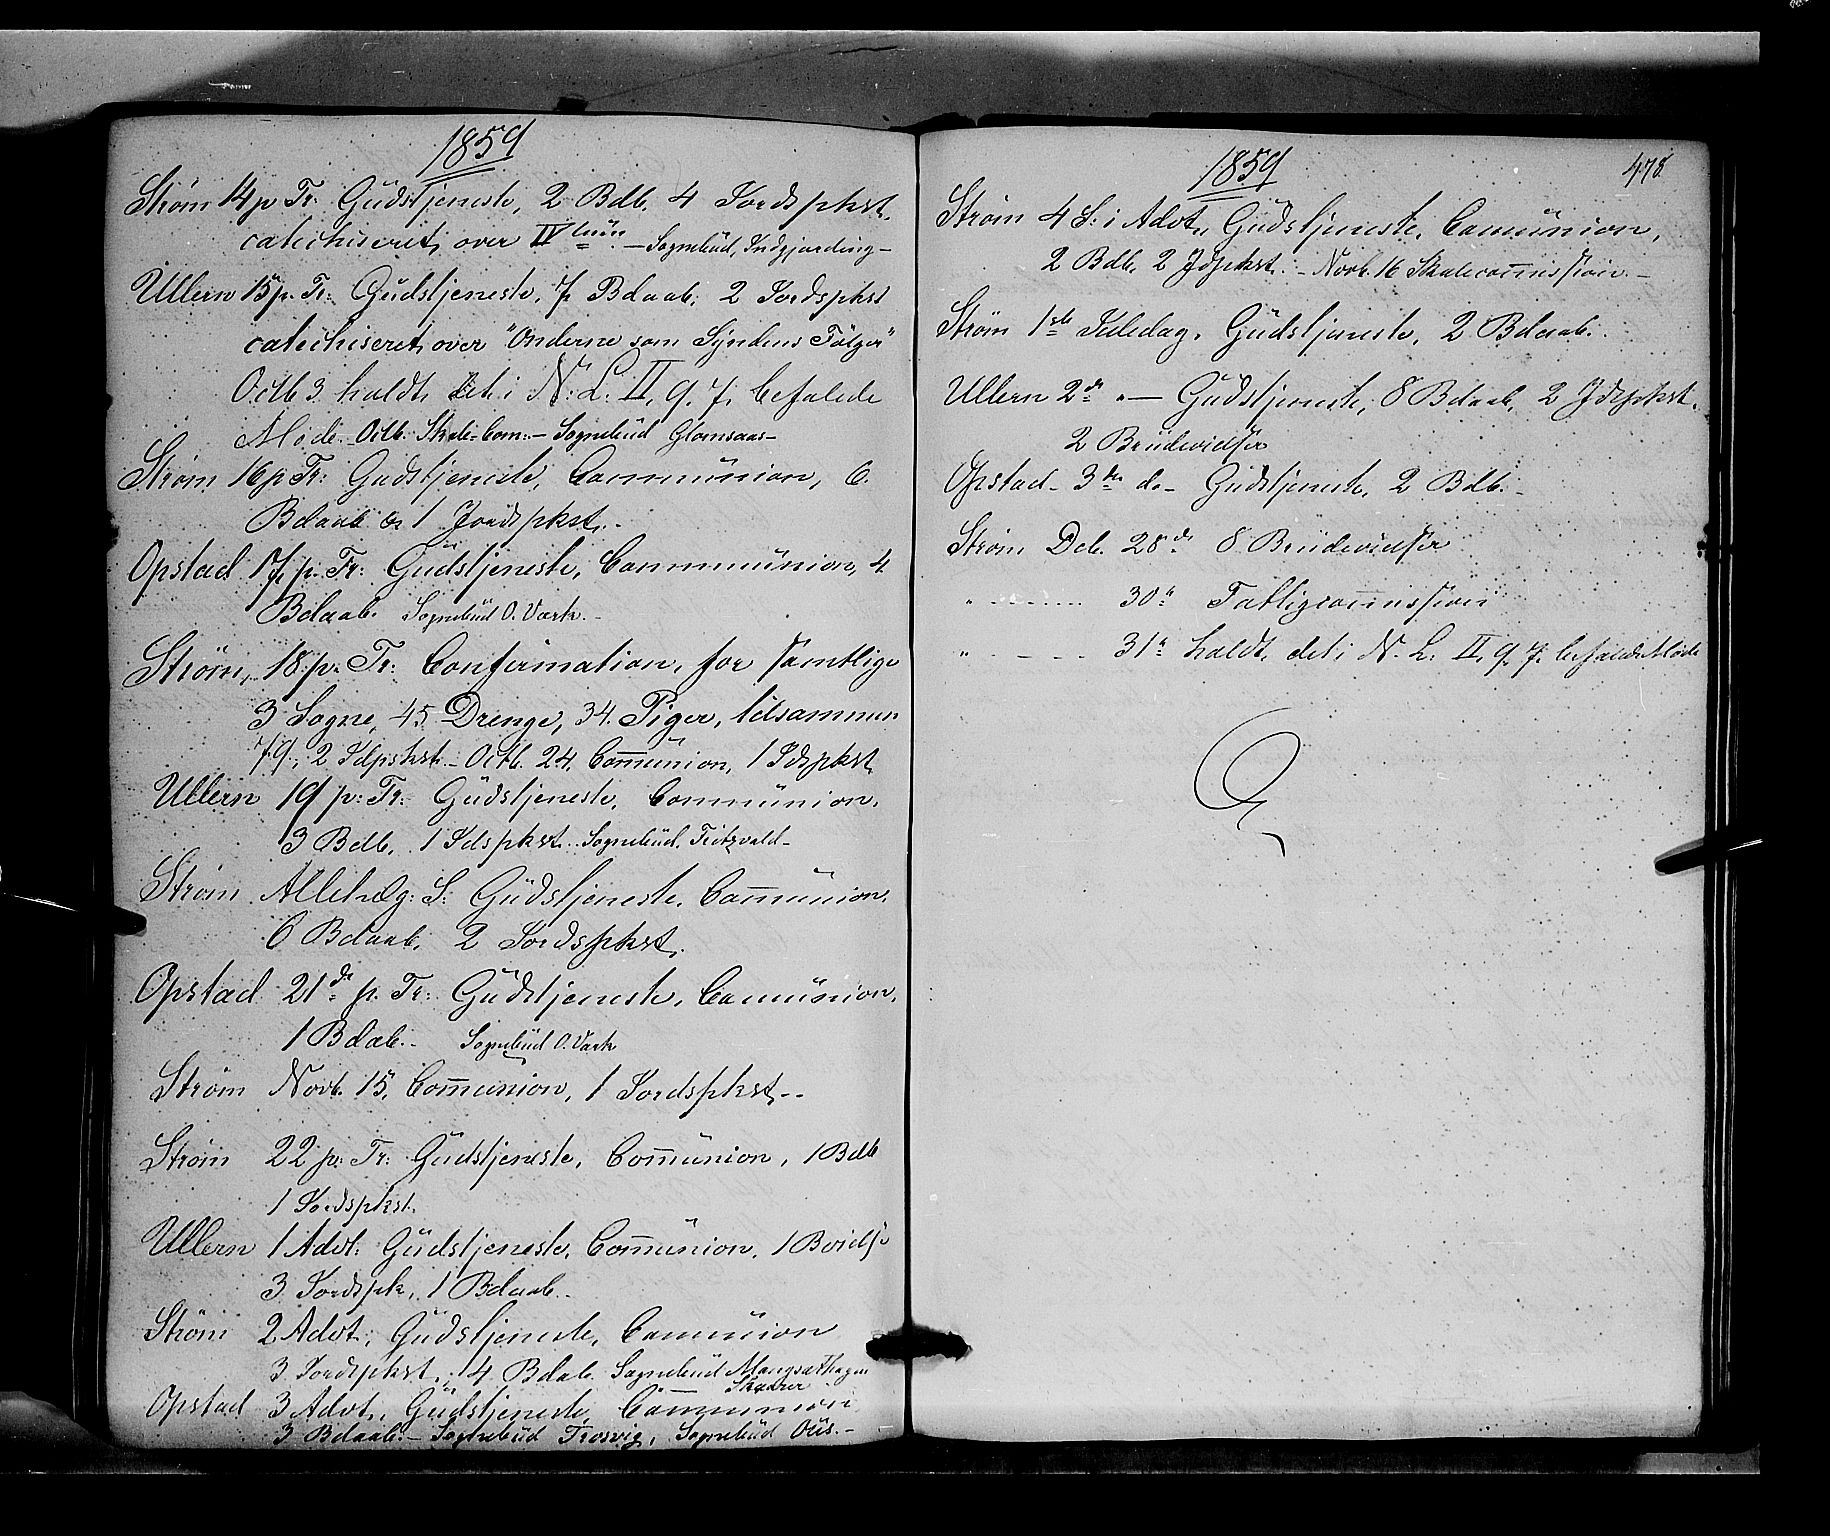 1859
Strøm 14 p. Tr. Gudstjeneste, 2 Bdb. 4 Jordspkst.
catechiseret over IV - Sognebud, Indgjærding -
Ullern 15 p. Tr: Gudstjeneste, 7 Bdaab, 2 Jordspkst
catechiseret over "Onderne som Syndens Følger"
Octb 3 holdt det i N: L: II, 9, 7, befalede
Møde. Octb. Skole-Com:- Sognebud Glomsaas-
Strøm 16 p Tr: Gudstjeneste, Communion, 6.
Bdaab & 1 Jordspkst.
Opstad 17 p. Tr: Gudstjeneste, Communion, 4
Bdaab. Sognebud O. Værk.
Strøm, 18. p. Tr: Confirmation, for samtlige
3 Sogne, 45 Drenge, 34. Piger, tilsammen
79., 2 Jdpskst. - Octb. 24. Communion, 1 Jdspkst
Ullern 19 p: Tr: Gudstjeneste, Communion,
3 Bdb, 1 Jdspkst. Sognebud. Fritzvald-
Strøm Allehelg: S: Gudstjeneste, Communion,
6 Bdaab, 2 Jordspkst.
Opstad 21de p. Tr: Gudstjeneste, Communion,
1 Bdab. - Sognebud O. Værk
Strøm Novb. 15, Communion, 1 Jordspkst. -
Strøm 22 p: Tr: Gudstjeneste, Communion, 1 Bdb
1 Jordspkst.
Ullern 1 Advt: Gudstjeneste, Communion, 1 Bvidse
3 Jordspk, 1 Bdaab.
Strøm 2 Advt., Gudstjeneste, Communion
3 Jordspkst., 4 Bdab. Sognebud Mangsæthagen
Skaarer
Opstad 3 Advt., Gudstjeneste, Communion
3 Bdaab. - Sognebud Trosvig, Sognebud Ous. -
1859
478
Strøm 4 S: i Advt., Gudstjeneste, Communion,
2 Bdb, 2 Jdpkst. - Novb. 16 Skolecommission -
Strøm 1ste Juledag. Gudstjeneste, 2 Bdaab.
Ullern 2d " — Gudstjeneste, 8 Bdaab, 2 Jdspkst.
2 Brudevidser
Opstad - 3die do - Gudstjeneste, 2 Bdb. -
Strøm Dcb. 28de 8 Brudevidser
" - - - - 30te Fattigcommission
" - - - - 31te holdt det i N. L: II, 9, 7, befalede Møde